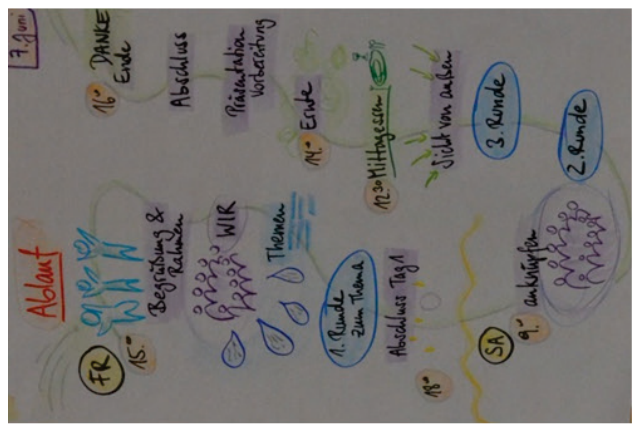 Ablauf
7. Juni
FR
15.⁰⁰
Begrüßung &
Rahmen
WIR
Themen
1. Runde
zum Thema
Abschluss Tag 1
18.⁰⁰
SA
9.⁰⁰
anknüpfen
2. Runde
3. Runde
Sicht von außen
12.³⁰ Mittagessen
14.⁰⁰ Ernte
Präsentation
Vorbereitung
Abschluss
16.⁰⁰ DANKE
Ende